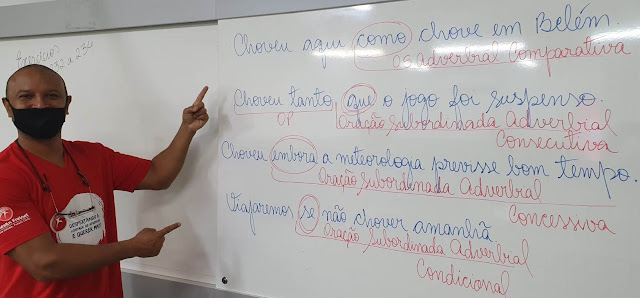 Choveu aqui como chove em Belém.
OS adverbial Comparativa
Choveu tanto, que o jogo foi suspenso.
OP Oração Subordinada Adverbial
Consecutiva
Choveu embora a meteorologia previsse bom tempo.
Oração Subordinada Adverbial
Concessiva
Viajaremos se não chover amanhã
Oração Subordinada Adverbial
Condicional